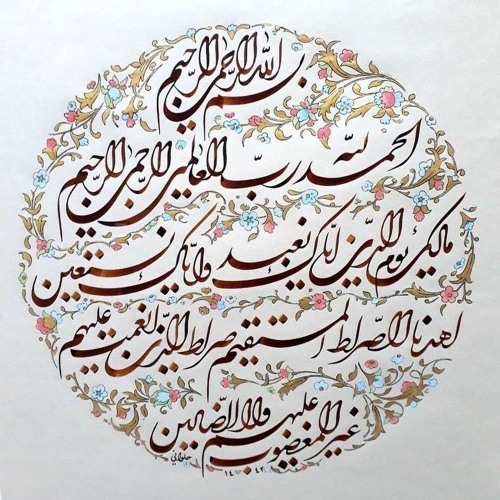 بسم الله الرحمن الرحيم
الحمد لله رب العالمين الرحمن الرحيم
مالك يوم الدين إياك نعبد وإياك نستعين
اهدنا الصراط المستقيم صراط الذين أنعمت عليهم
غير المغضوب عليهم ولا الضالين
حلواني ١٤٤٢